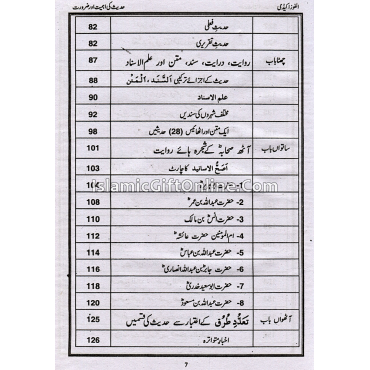 الفوز اکیڈمی حدیث کی اہمیت اور ضرورت
حدیثِ فعلی 82
حدیثِ تقریری 82
چھٹا باب روایت، درایت، سند، متن اور علم الاسناد 87
حدیث کے اجزائے ترکیبی اَلسَّنَد، اَلْمَتْن 88
علم الاسناد 90
مختلف شہروں کی سندیں 92
ایک متن اور اٹھائیس (28) حدیثیں 98
ساتواں باب آٹھ صحابہؓ کے شجرہ ہائے روایت 101
اَصَحُّ الاسانید کا چارٹ 103
IslamicGiftOnline.Com
104
2- حضرت عبداللہ بن عمرؓ 108
3- حضرت انسؓ بن مالک 110
4- ام المؤمنین حضرت عائشہؓ 112
5- حضرت عبداللہ بن عباسؓ 114
6- حضرت جابر بن عبداللہ انصاریؓ 116
7- حضرت ابوسعید خدریؓ 118
8- حضرت عبداللہ بن مسعودؓ 120
آٹھواں باب تَعَدُّدِ طُرُق کے اعتبار سے حدیث کی قسمیں 125
اخبارِ متواترہ 126
7